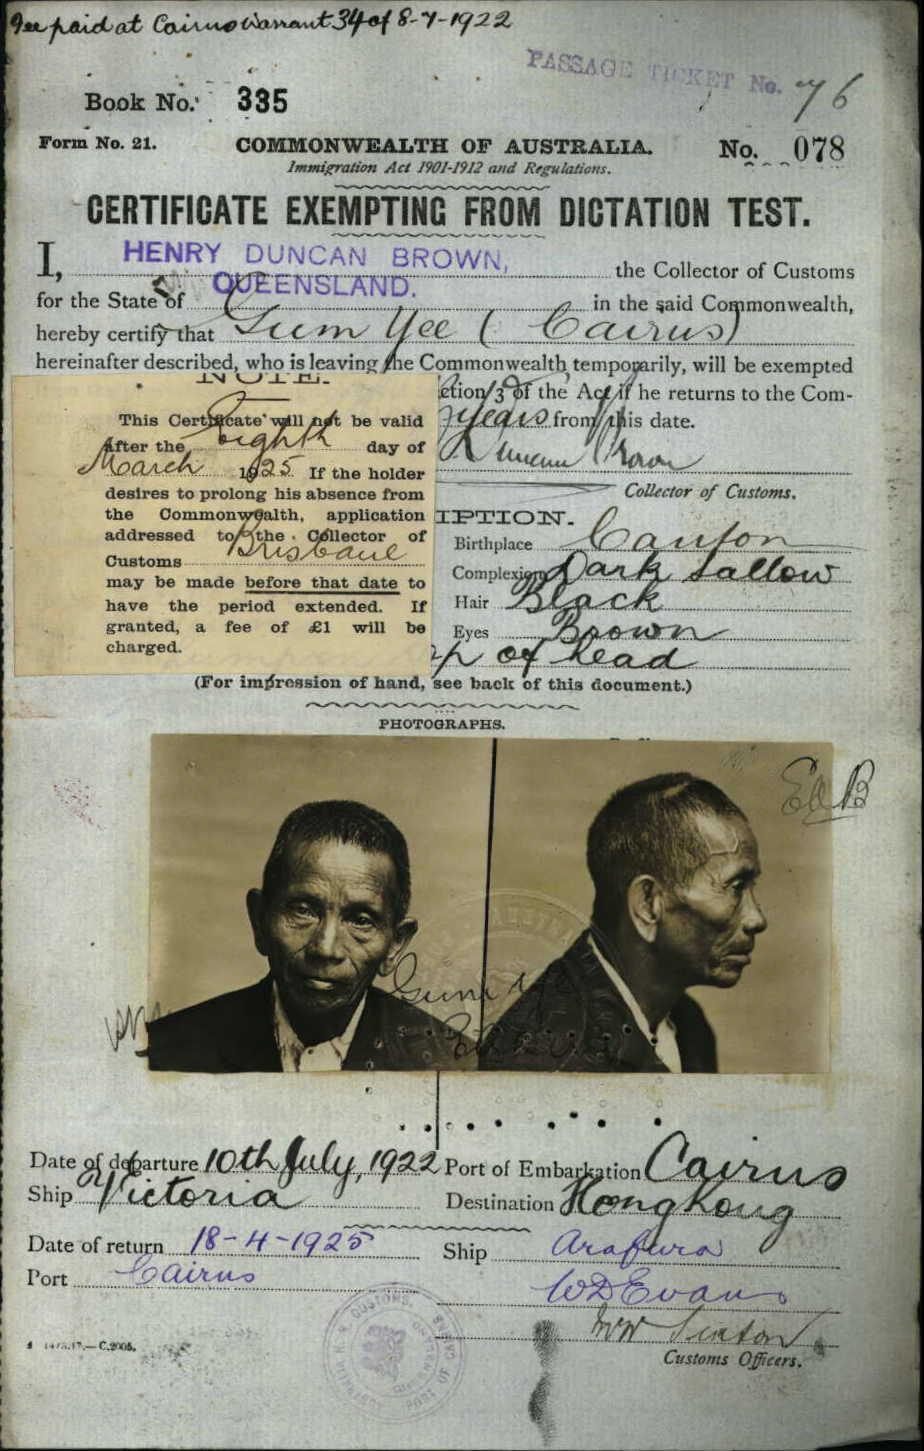 Fee paid at Cairns Warrant 34 of 8-7-1922
PASSAGE TICKET No. 76
Book No. 335
Form No. 21.
COMMONWEALTH OF AUSTRALIA.
No. 078
Immigration Act 1901-1912 and Regulations.
CERTIFICATE EXEMPTING FROM DICTATION TEST.
I, HENRY DUNCAN BROWN, the Collector of Customs
for the State of QUEENSLAND. in the said Commonwealth,
hereby certify that Gum Yee (Cairns)
hereinafter described, who is leaving the Commonwealth temporarily, will be exempted
ction 3 of the Act if he returns to the Com-
years from this date.
Duncan Brown
Collector of Customs.
NOTE.
This Certificate will not be valid
after the Eighth day of
March 1925. If the holder
desires to prolong his absence from
the Commonwealth, application
addressed to the Collector of
Customs Brisbane
may be made before that date to
have the period extended. If
granted, a fee of £1 will be
charged.
IPTION.
Birthplace Canton
Complexion Dark Sallow
Hair Black
Eyes Brown
of head
(For impression of hand, see back of this document.)
PHOTOGRAPHS.
Gum Yee
Date of departure 10th July, 1922
Port of Embarkation Cairns
Ship Victoria
Destination Hong Kong
Date of return 18-4-1925
Ship Arafura
Port Cairns
WD Evans
Customs Officers.
C.2005.